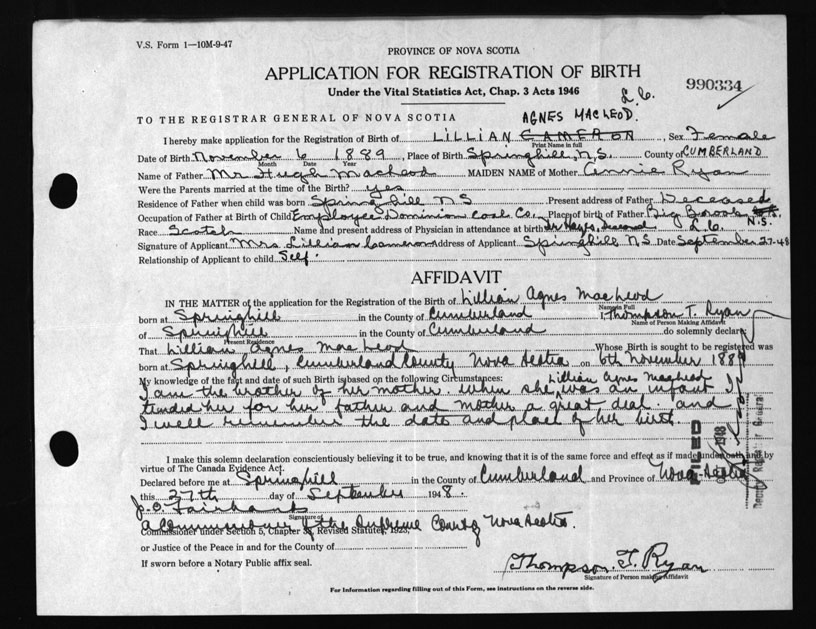 V.S. Form 1—10M-9-47
PROVINCE OF NOVA SCOTIA
APPLICATION FOR REGISTRATION OF BIRTH
Under the Vital Statistics Act, Chap. 3 Acts 1946
990334
L.C.
TO THE REGISTRAR GENERAL OF NOVA SCOTIA
AGNES MACLEOD.
I hereby make application for the Registration of Birth of LILLIAN CAMERON, Sex Female
Print Name in full
Date of Birth November 6 1889, Place of Birth Springhill, N.S. County of CUMBERLAND
Month Date Year
Name of Father Mr Hugh Macleod MAIDEN NAME of Mother Annie Ryan
Were the Parents married at the time of the Birth? yes
Residence of Father when child was born Springhill N S Present address of Father Deceased
Occupation of Father at Birth of Child Employee Dominion Coal Co. Place of birth of Father Big Brook N.S.
Race Scotch Name and present address of Physician in attendance at birth Dr Hayes, Deceased L.C.
Signature of Applicant Mrs Lillian Cameron Address of Applicant Springhill N.S. Date September 27-48
Relationship of Applicant to child Self.
AFFIDAVIT
IN THE MATTER of the application for the Registration of the Birth of Lillian Agnes MacLeod
Name in Full
born at Springhill in the County of Cumberland I Thompson T. Ryan
Name of Person Making Affidavit
of Springhill in the County of Cumberland do solemnly declare
Present Residence
That Lillian Agnes MacLeod Whose Birth is sought to be registered was
born at Springhill, Cumberland County Nova Scotia on 6th November 1889
My knowledge of the fact and date of such Birth is based on the following Circumstances: Lillian Agnes MacLeod
I am the brother of her mother. When she was an infant I
tended her for her father and mother a great deal and
I well remember the date and place of her birth.
FILED
1948
Deputy Registrar General
I make this solemn declaration conscientiously believing it to be true, and knowing that it is of the same force and effect as if made under oath and by
virtue of The Canada Evidence Act.
Declared before me at Springhill in the County of Cumberland and Province of Nova Scotia
this 27th day of September 1948.
J. C. Fairbanks
Signature of
A Commissioner of the Supreme Court of Nova Scotia.
Commissioner under Section 5, Chapter Revised Statutes, 1923,
or Justice of the Peace in and for the County of
If sworn before a Notary Public affix seal.
Thompson. T. Ryan
Signature of Person making Affidavit
For Information regarding filling out of this Form, see instructions on the reverse side.